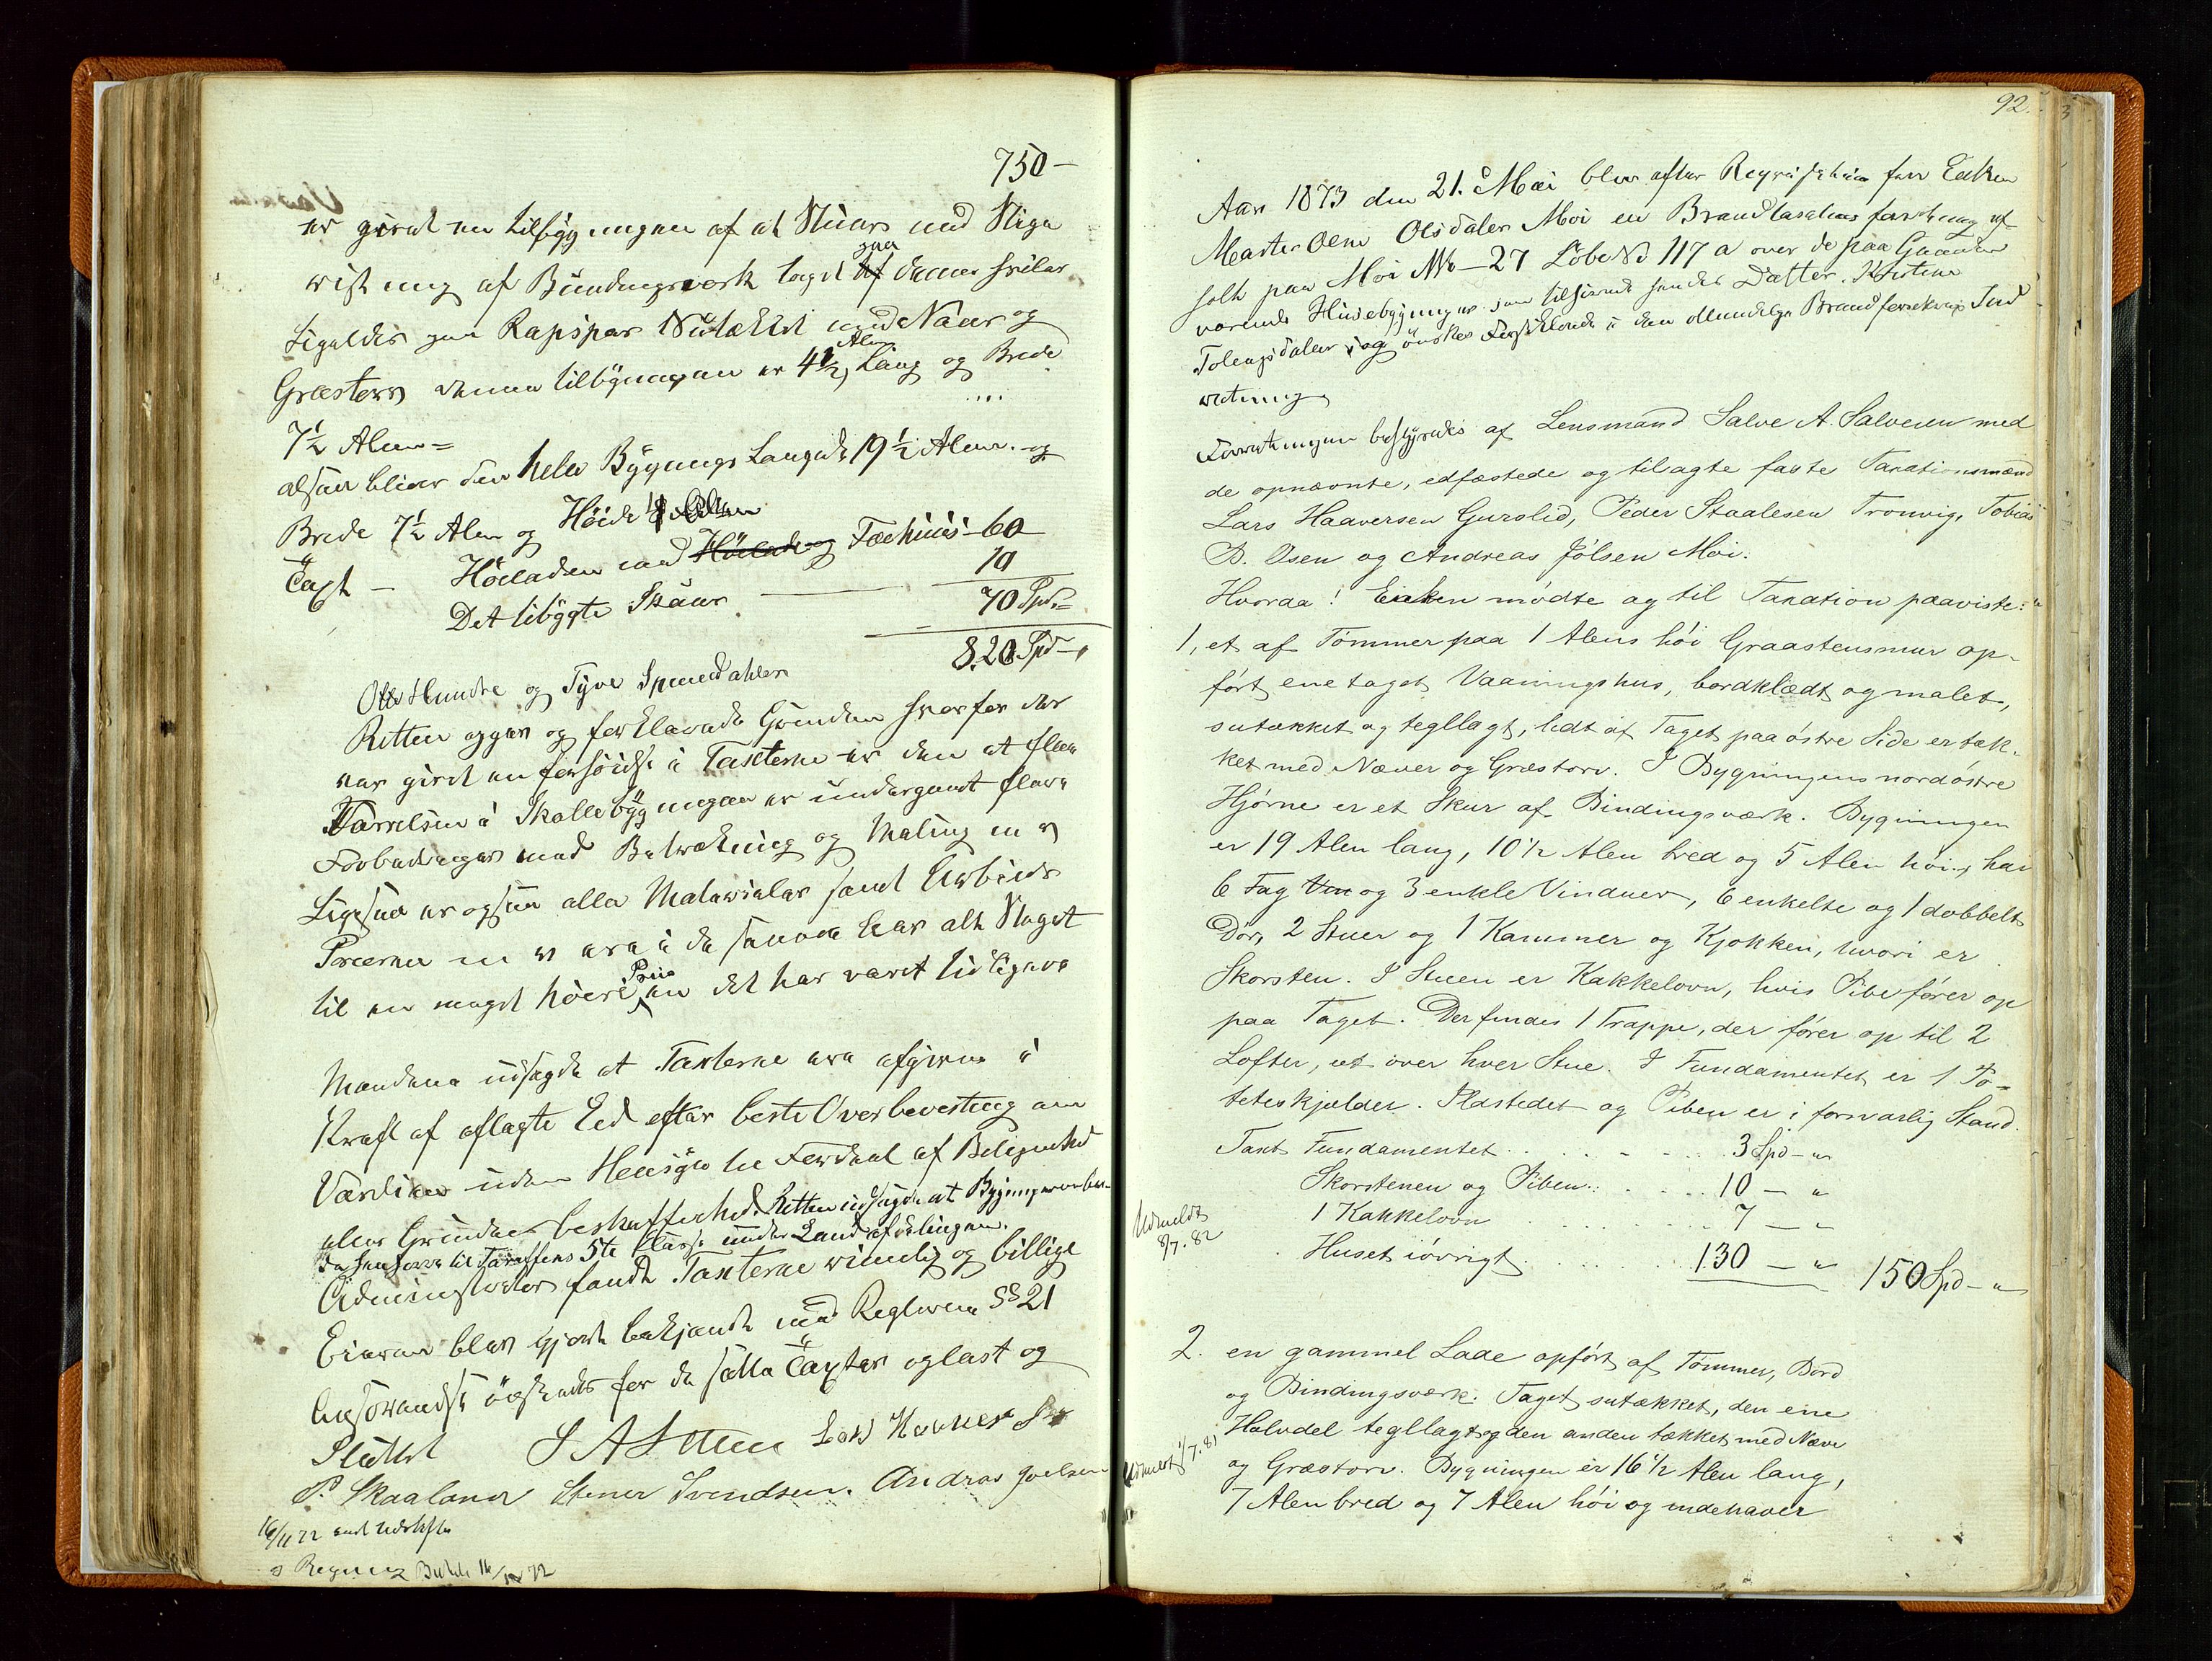 750-
er giort en tilbygningen af et Skuur med Stiga
af Bindingsverk taget paa
paa Rapspær Nutækket med Næver og
Græstorv denne tilbygningen er 4½ Alen Lang og Brede
7½ Alen =
altsaa bliver den hele Bygnings Længde 19½ Alen og
Brede 7½ Alen og Høide
Taxt - Høeladen med Fæehuus - 60
Det tilbygte Skuur - 10
70 Spd =
820 Spd -
Otte Hundre og Tyve Speciedahler
Retten og forklarede Grunden hvorfor der
var giort en forhøielse i Taxterne er den at flere
i Skollebygningen er undergaaet flere
Forbedringer med Betrækning og Maling m v
Ligesaa er ogsaa alle Materialer samt Arbeids
Priserne m v i de senere Aar alt Steget
til en meget høiere Priis en det har været tidligere
Mændene udsagde at Taxterne ere afgivne i
Kraft af aflagte Eed efter beste Overbevisning om
Værdien uden Hensyn til Fordeel af Beligenhed
eller Grundens beskaffenhed. Retten udsagde at Bygningerne
da henhører til Tariffens 5te Classe under Landafdelingen.
Administrator fandt Taxterne rimelig og billige
Eieren blev gjort bekjendt med Reglerne §§ 21
Assurandse øgskedes for de satte Taxter oplæst og
Sluttet
P. Skaaland Stener Svendsen. Andras Joelsen
16/11 72
16/11 72
92.
Aar 1873 den 21. Mai blev efter Reqvisition fra Enken
Marte Oene Olsdater Moi en Brandtaxations forretning af-
holt paa Moi No - 27 Løbe No 117 a over de paa Gaarden
værende Huusebygninger som tilhører hendes Datter Kristine
Tolengsdater og ønskes Forsikkrede i den Almindelige Brandforsikrings Ind
retning
Forretningen bestyredes af Lensmand Salve A. Salvesen med
de opnævnte, edfæstede og tilsagte faste Taxationsmænd
Lars Haaversen Gurslid, Peder Staalesen Tronvig, Tobias
B. Osen og Andreas Jølsen Moi.
Hvoraa! Enken mødte og til Taxation paaviste:
1, et af Tømmer paa 1 Alens høi Graastensmur op-
ført ene taget Vaaningshus, bordklædt og malet,
sutækket og tegllagt, lidt af Taget paa østre Side er tæk-
ket med Næver og Græstorv. I Bygningens nordøstre
Hjørne er et Skur af Bindingsværk. Bygningen
er 19 Alen lang, 10½ Alen bred og 5 Alen høi, har
6 Fag og 3 enkle Vinduer, 6 enkelte og 1 dobbelt
Dør, 2 Stuer og 1 Kammer og Kjøkken, hvori er
Skorsten. I Stuen er Kakkelovn, hvis Pibe fører op
paa Taget. Der findes 1 Trappe, der fører op til 2
Lofter, et over hver Stue. I Fundamentet er 1 Po-
teteskjælder. Ildstedet og Piben er i forsvarlig Stand.
Taxt Fundamentet . . . . . 3 Spd - "
Skorstenen og Piben . . . . 10 - "
1 Kakkelovn . . . . . 7 - "
Udmeldt
8/7. 82
Huset iøvrigt . . . . . 130 - " 150 Spd - "
2. en gammel Lade opført af Tømmer, Bord
og Bindingsværk. Taget sutækket, den ene
Halvdel tegllagt og den anden tækket med Næver
og Græstorv. Bygningen er 16½ Alen lang,
7 Alen bred og 7 Alen høi og indehaver